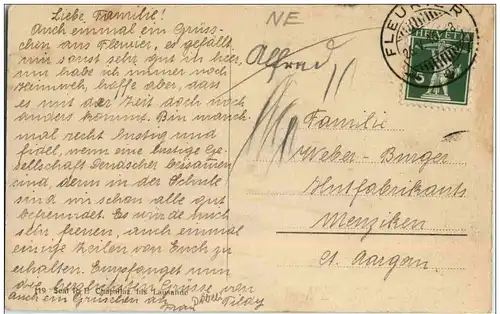 NE
Liebe Familie!
Auch einmal ein Grüss-
chen aus Fleurier, es gefällt
mir sonst sehr gut hier,
nur habe ich immer noch
Heimweh, hoffe aber, dass
es mit der Zeit doch noch
anders kommt. Bin manch-
mal recht lustig und
fidel, wenn eine lustige Ge-
sellschaft beisamen
sind, denn in der Schule
sind wir schon alle gut
befreundet. Es würde mich
sehr freuen, auch einmal
einige Zeilen von Euch zu
erhalten. Empfanget nun
die herzlichsten Grüsse von
auch ein Grüschen an
119 Seal
Lausanne
FLEURIER
HELVETIA
5
Alfred
Familie
Weber-Burger
Hutfabrikants
Menziken
Ct. Aargau